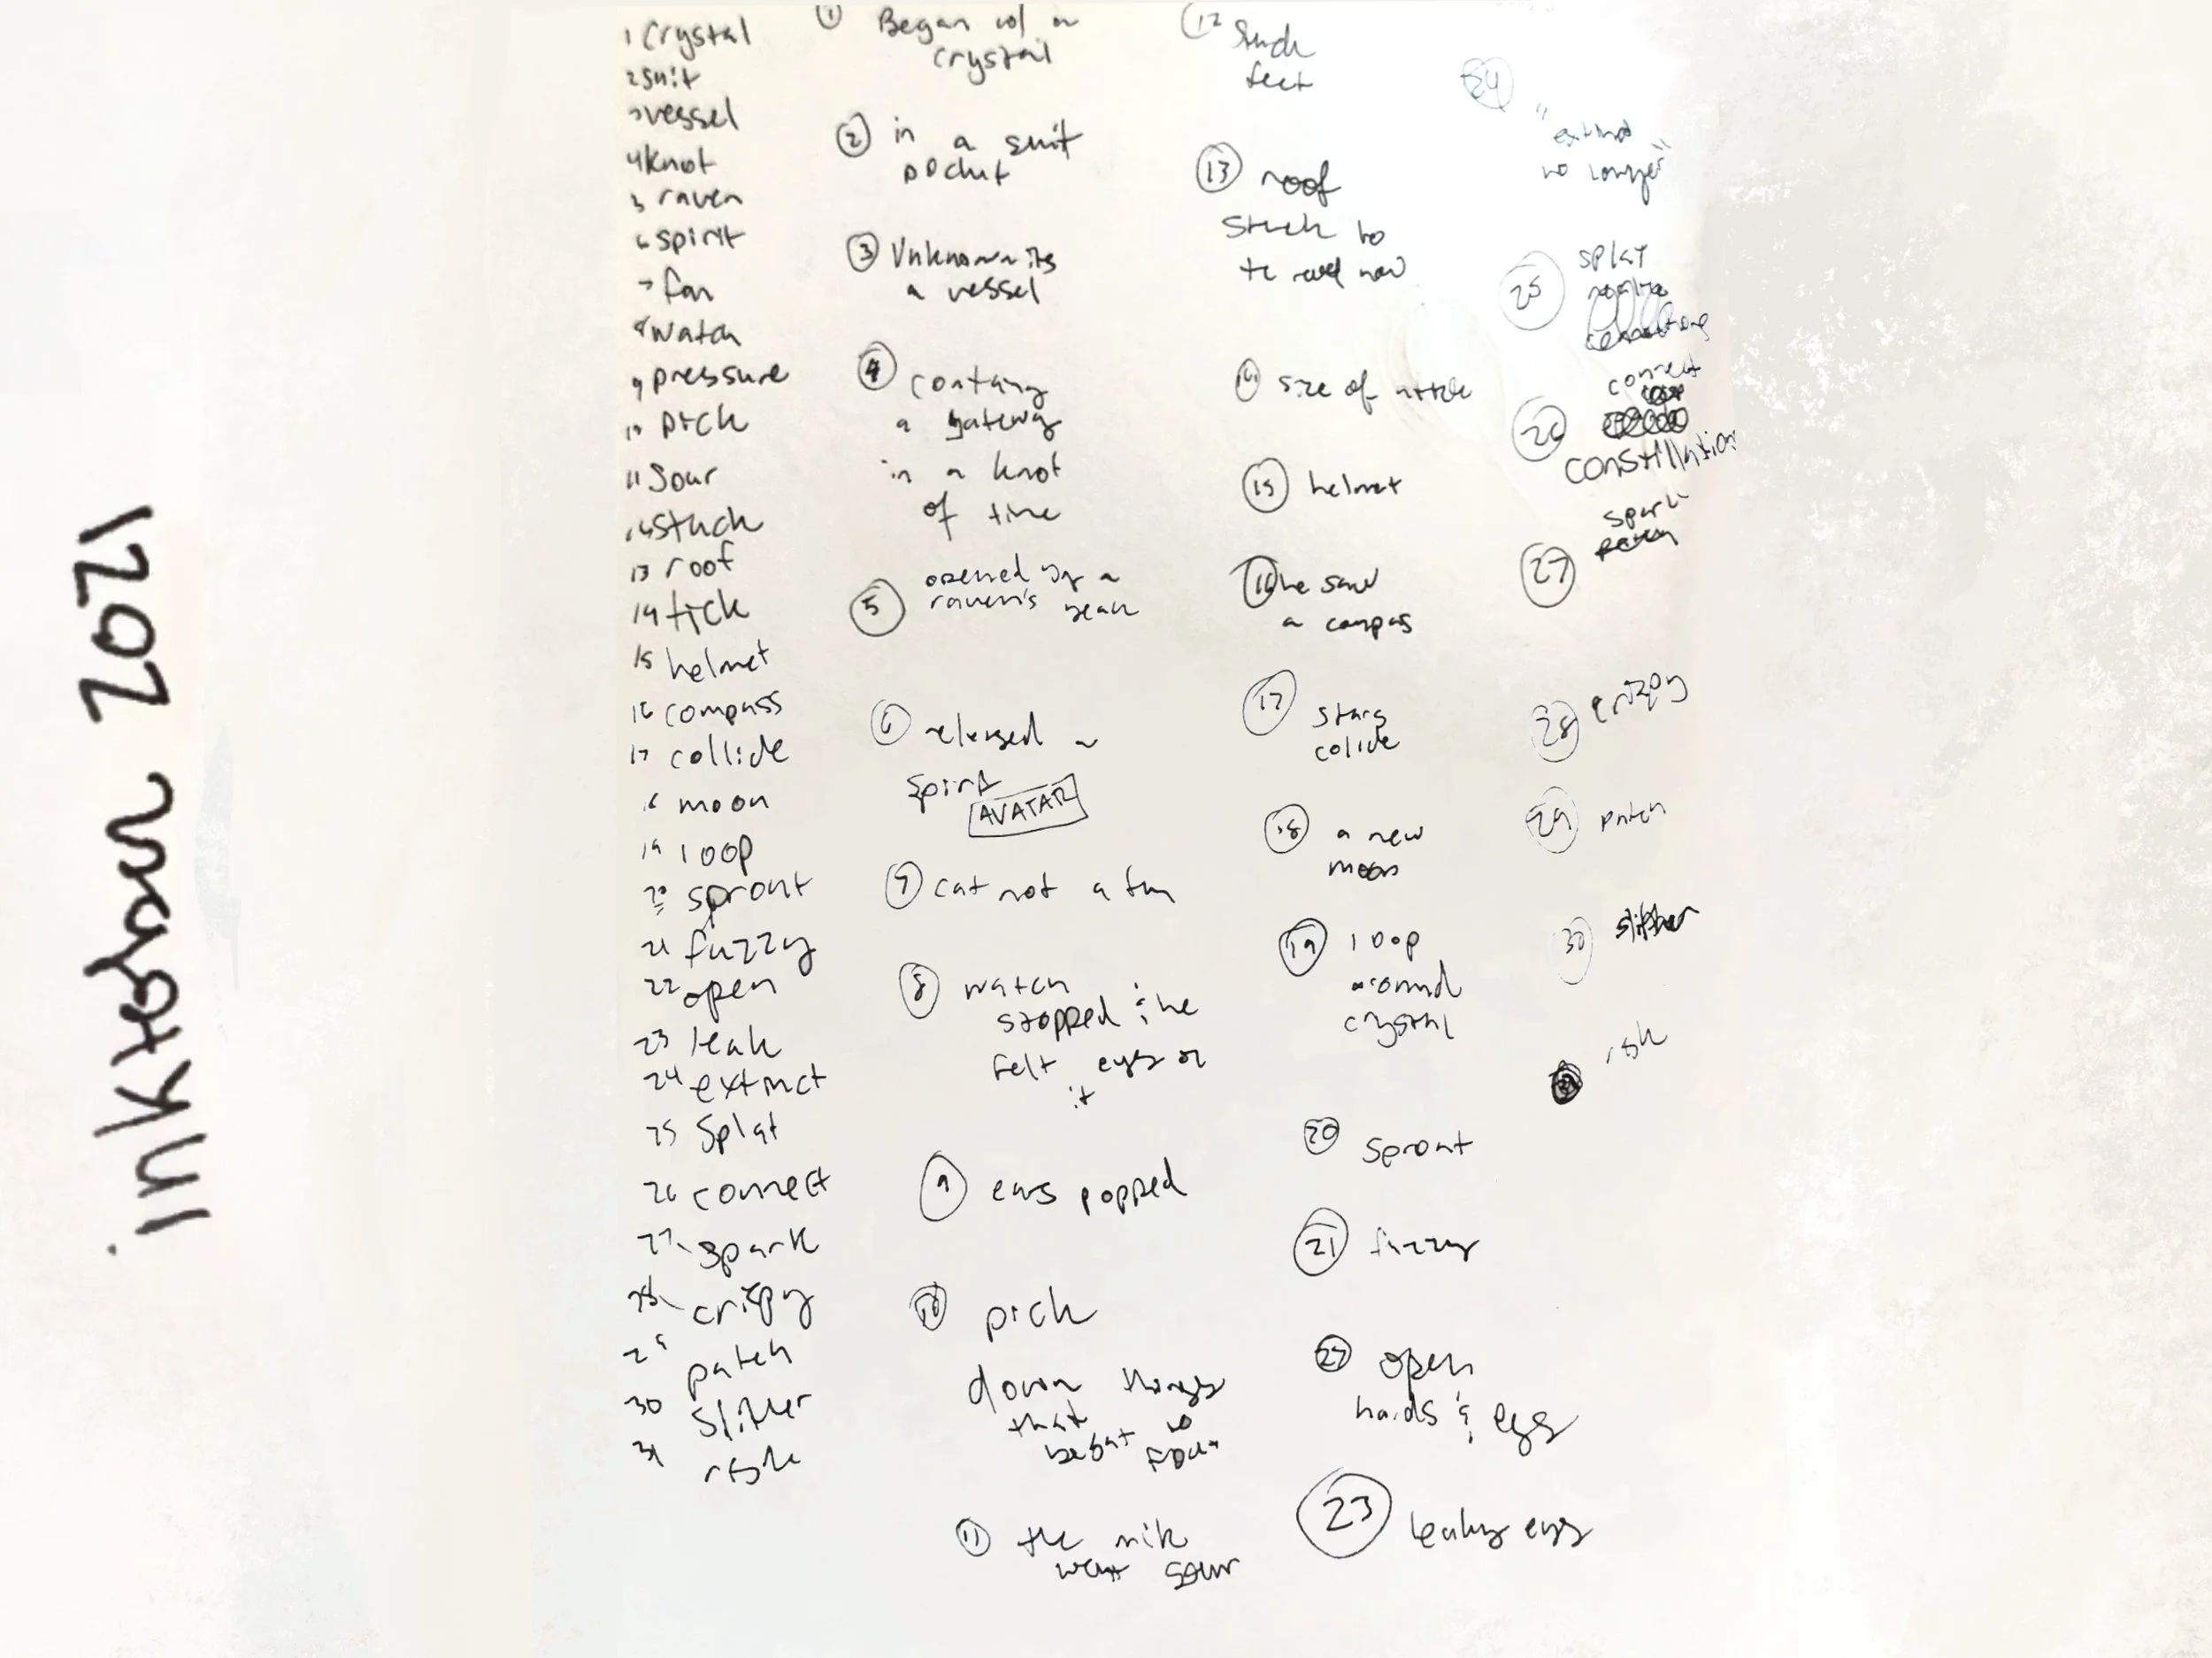 inktober 2021
1 crystal
2 suit
3 vessel
4 knot
5 raven
6 spirit
7 fan
8 watch
9 pressure
10 pick
11 sour
12 stuck
13 roof
14 tick
15 helmet
16 compass
17 collide
18 moon
19 loop
20 sprout
21 fuzzy
22 open
23 leak
24 extinct
25 splat
26 connect
27 spark
28 crispy
29 patch
30 slither
31 risk
① Began w/ a
crystal
② in a suit
pocket
③ Unknown its
a vessel
④ contains
a gateway
in a knot
of time
⑤ opened by a
raven's beak
⑥ released a
spirit
AVATAR
⑦ cat not a fan
⑧ watch
stopped & he
felt eyes on
it
⑨ ears popped
⑩ pick
down things
that
to
⑪ the milk
went sour
⑫ Stuck
feet
⑬ roof
stuck to
the roof now
⑭ size of a tick
⑮ helmet
⑯ he saw
a compas
⑰ stars
colide
⑱ a new
moon
⑲ loop
around
crystal
⑳ sprout
㉑ fuzzy
㉒ open
hands & eyes
㉓ leaky eyes
㉔ "extinct
no longer"
㉕ splat
connect
㉖
constillation
spark
㉗
㉘ crispy
㉙ patch
㉚ slither
risk